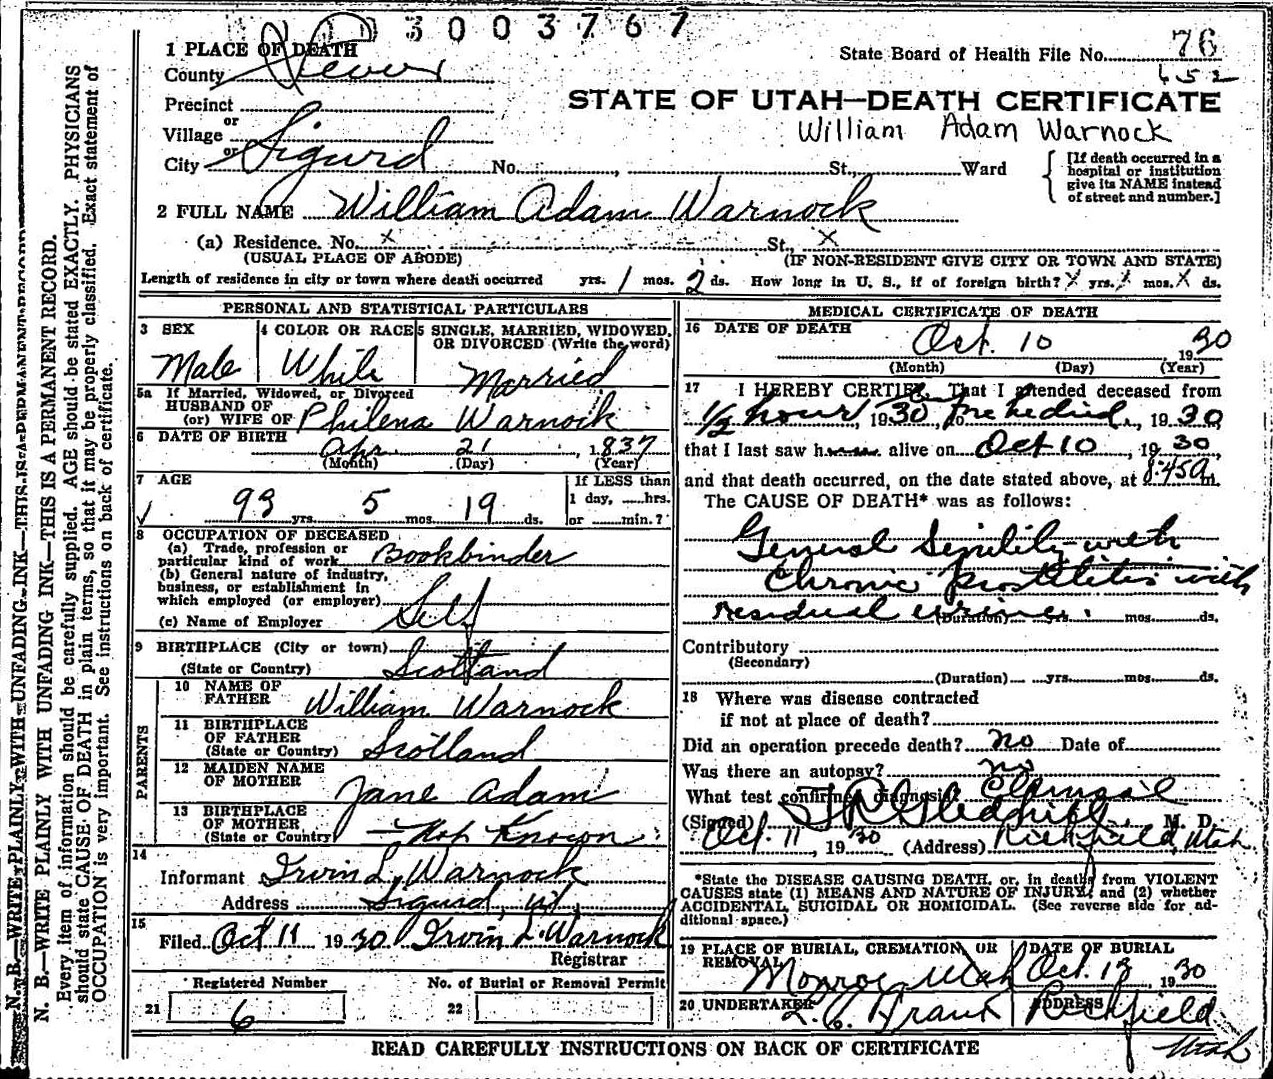 3003767
1 PLACE OF DEATH
County Sevier
State Board of Health File No. 76
652
Precinct
or
Village
or
City Sigurd No. , St., Ward
STATE OF UTAH—DEATH CERTIFICATE
William Adam Warnock
[If death occurred in a hospital or institution give its NAME instead of street and number.]
2 FULL NAME William Adam Warnock
(a) Residence. No. x St., x
(USUAL PLACE OF ABODE) (IF NON-RESIDENT GIVE CITY OR TOWN AND STATE)
Length of residence in city or town where death occurred yrs. 1 mos. 2 ds. How long in U. S., if of foreign birth? x yrs. x mos. x ds.
PERSONAL AND STATISTICAL PARTICULARS
3 SEX
Male
4 COLOR OR RACE
White
5 SINGLE, MARRIED, WIDOWED, OR DIVORCED (Write the word)
Married
5a If Married, Widowed, or Divorced
HUSBAND OF
(or) WIFE OF Philena Warnock
6 DATE OF BIRTH
Apr. 21, 1837
(Month) (Day) (Year)
7 AGE
93 yrs. 5 mos. 19 ds.
If LESS than
1 day, hrs.
or min.?
8 OCCUPATION OF DECEASED
(a) Trade, profession or
particular kind of work Bookbinder
(b) General nature of industry,
business, or establishment in
which employed (or employer)
(c) Name of Employer Self
9 BIRTHPLACE (City or town)
(State or Country) Scotland
PARENTS
10 NAME OF
FATHER William Warnock
11 BIRTHPLACE
OF FATHER
(State or Country) Scotland
12 MAIDEN NAME
OF MOTHER
Jane Adam
13 BIRTHPLACE
OF MOTHER
(State or Country) Not Known
14
Informant Irvin L. Warnock
Address Sigurd, Ut,
15
Filed Oct 11 1930 Irvin L. Warnock
Registrar
Registered Number
21 6
No. of Burial or Removal Permit
22
MEDICAL CERTIFICATE OF DEATH
16 DATE OF DEATH
Oct. 10, 1930
(Month) (Day) (Year)
17 I HEREBY CERTIFY, That I attended deceased from
1/2 hour, 1930, to he died, 1930
that I last saw h alive on Oct 10, 1930,
and that death occurred, on the date stated above, at 8:45a m.
The CAUSE OF DEATH* was as follows:
General Senility with
Chronic prostatitis with
residual urine.
(Duration) yrs. mos. ds.
Contributory
(Secondary)
(Duration) yrs. mos. ds.
18 Where was disease contracted
if not at place of death?
Did an operation precede death? no Date of
Was there an autopsy? no
What test confirmed diagnosis? Clinical
(Signed) T R Gledhill, M. D.
Oct 11, 1930 (Address) Richfield, Utah
*State the DISEASE CAUSING DEATH, or, in deaths from VIOLENT
CAUSES state (1) MEANS AND NATURE OF INJURY and (2) whether
ACCIDENTAL, SUICIDAL OR HOMICIDAL. (See reverse side for ad-
ditional space.)
19 PLACE OF BURIAL, CREMATION, OR
REMOVAL
Monroe Utah
DATE OF BURIAL
Oct. 13, 1930
20 UNDERTAKER
ADDRESS
Richfield
Utah
READ CAREFULLY INSTRUCTIONS ON BACK OF CERTIFICATE
N. B.—WRITE PLAINLY WITH UNFADING INK—THIS IS A PERMANENT RECORD
N. B.—WRITE PLAINLY WITH UNFADING INK—THIS IS A PERMANENT RECORD.
Every item of information should be carefully supplied. AGE should be stated EXACTLY. PHYSICIANS
should state CAUSE OF DEATH in plain terms, so that it may be properly classified. Exact statement of
OCCUPATION is very important. See instructions on back of certificate.